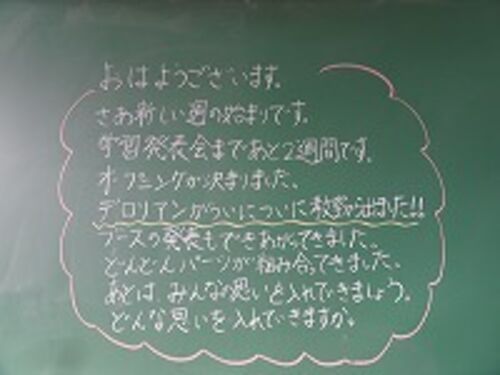 おはようございます。
さあ新しい週の始まりです。
学習発表会まであと2週間です。
オープニングが決まりました。
デロリアンがついについに教室から出ました!!
ブースの発表もできあがってきました。
どんどんパーツが組み合ってきました。
あとは、みんなの思いを入れていきましょう。
どんな思いを入れていきますか。